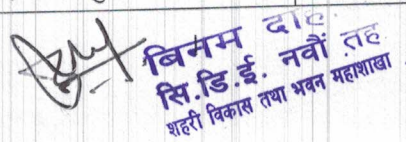 बिनम दाह
सि.डि.ई. नवौं तह
शहरी विकास तथा भवन महाशाखा